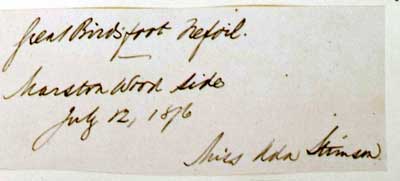 Great Birdsfoot Trefoil.
Marston Wood Side
July 12, 1876
Miss Ada Stimson